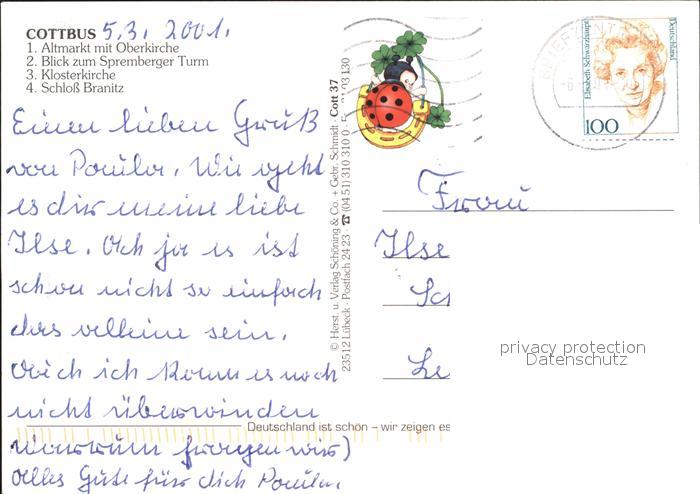 COTTBUS 5.3. 2001.
1. Altmarkt mit Oberkirche
2. Blick zum Spremberger Turm
3. Klosterkirche
4. Schloß Branitz
Einen lieben Gruß
von Paula. Wie geht
es dir meine liebe
Ilse. Ach ja es ist
schon nicht so einfach
das alleine sein.
Auch ich kann es noch
nicht überwinden
Warrum fragen wir)
Alles Gute für dich Paula.
© Herst. u. Verlag Schöning & Co. + Gebr. Schmidt · Cott 37
23512 Lübeck · Postfach 24 23 ☎ (04 51) 310 310 0
03 130
Deutschland ist schön – wir zeigen es
Elisabeth Schwarzhaupt
Deutschland
100
Frau
Ilse
Sc
Le
privacy protection
Datenschutz